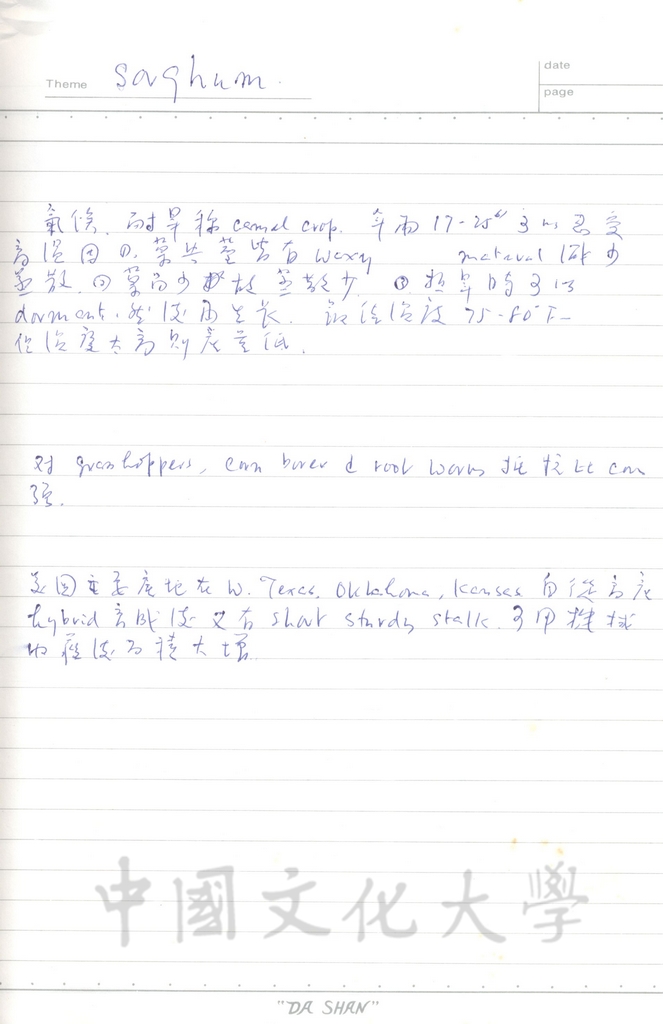 Theme Sorghum.
date
page
氣候. 耐旱称 camel crop. 年雨 17-25" 可以忍受
高溫因 ①. 葉與莖皆有 waxy material 減少
蒸散. ② 葉面少故蒸散少. ③ 極旱時可以
dormant. 然後雨生長. 最佳溫度 75-80°F-
但溫度太高則產量低.
对 grasshoppers, corn borer & root worms 抵抗比 corn
強.
美國主要產地在 W. Texas, Oklahoma, Kansas 自從高產
hybrid 育成後又有 short sturdy stalk. 可用機械
收穫後面積大增
中國文化大學
"DA SHAN"